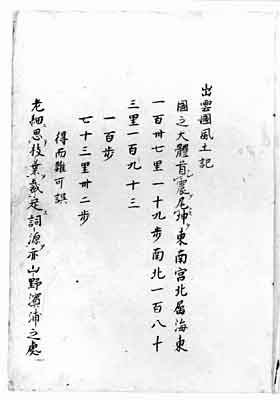 出雲國風土記
國之大體首震尾坤東南宮北属海東
一百卅七里一十九歩南北一百八十
三里一百九十三
一百歩
七十三里卅二歩
得而難可誤
老細思枝葉裁定詞源亦山野濱浦之處